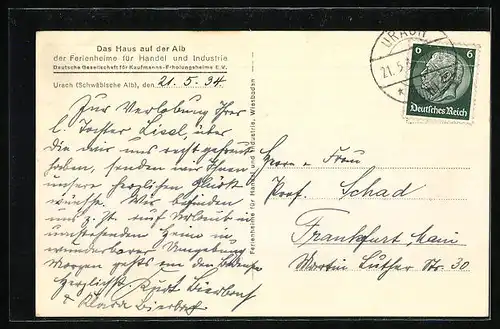 Das Haus auf der Alb
der Ferienheime für Handel und Industrie
Deutsche Gesellschaft für Kaufmanns-Erholungsheime E.V.
Urach (Schwäbische Alb), den 21. 5. 34.
Zur Verlobung Ihrer
l. Tochter Lisel, über
die wir uns recht gefreut
haben, senden wir Ihnen
unsere herzlichen Glück
wünsche. Wir befinden
uns z. Zt. auf Urlaub in
umstehendem Heim in
wunderbarer Umgebung
Morgen gehts an den
Herzlichst Kurt Bierbach
& Klara Bierbach
Ferienheime für Handel und Industrie, Wiesbaden
URACH
21.5.
6 6
Deutsches Reich
Herrn u Frau
Prof. Schad
Frankfurt Main
Martin Luther Str. 30